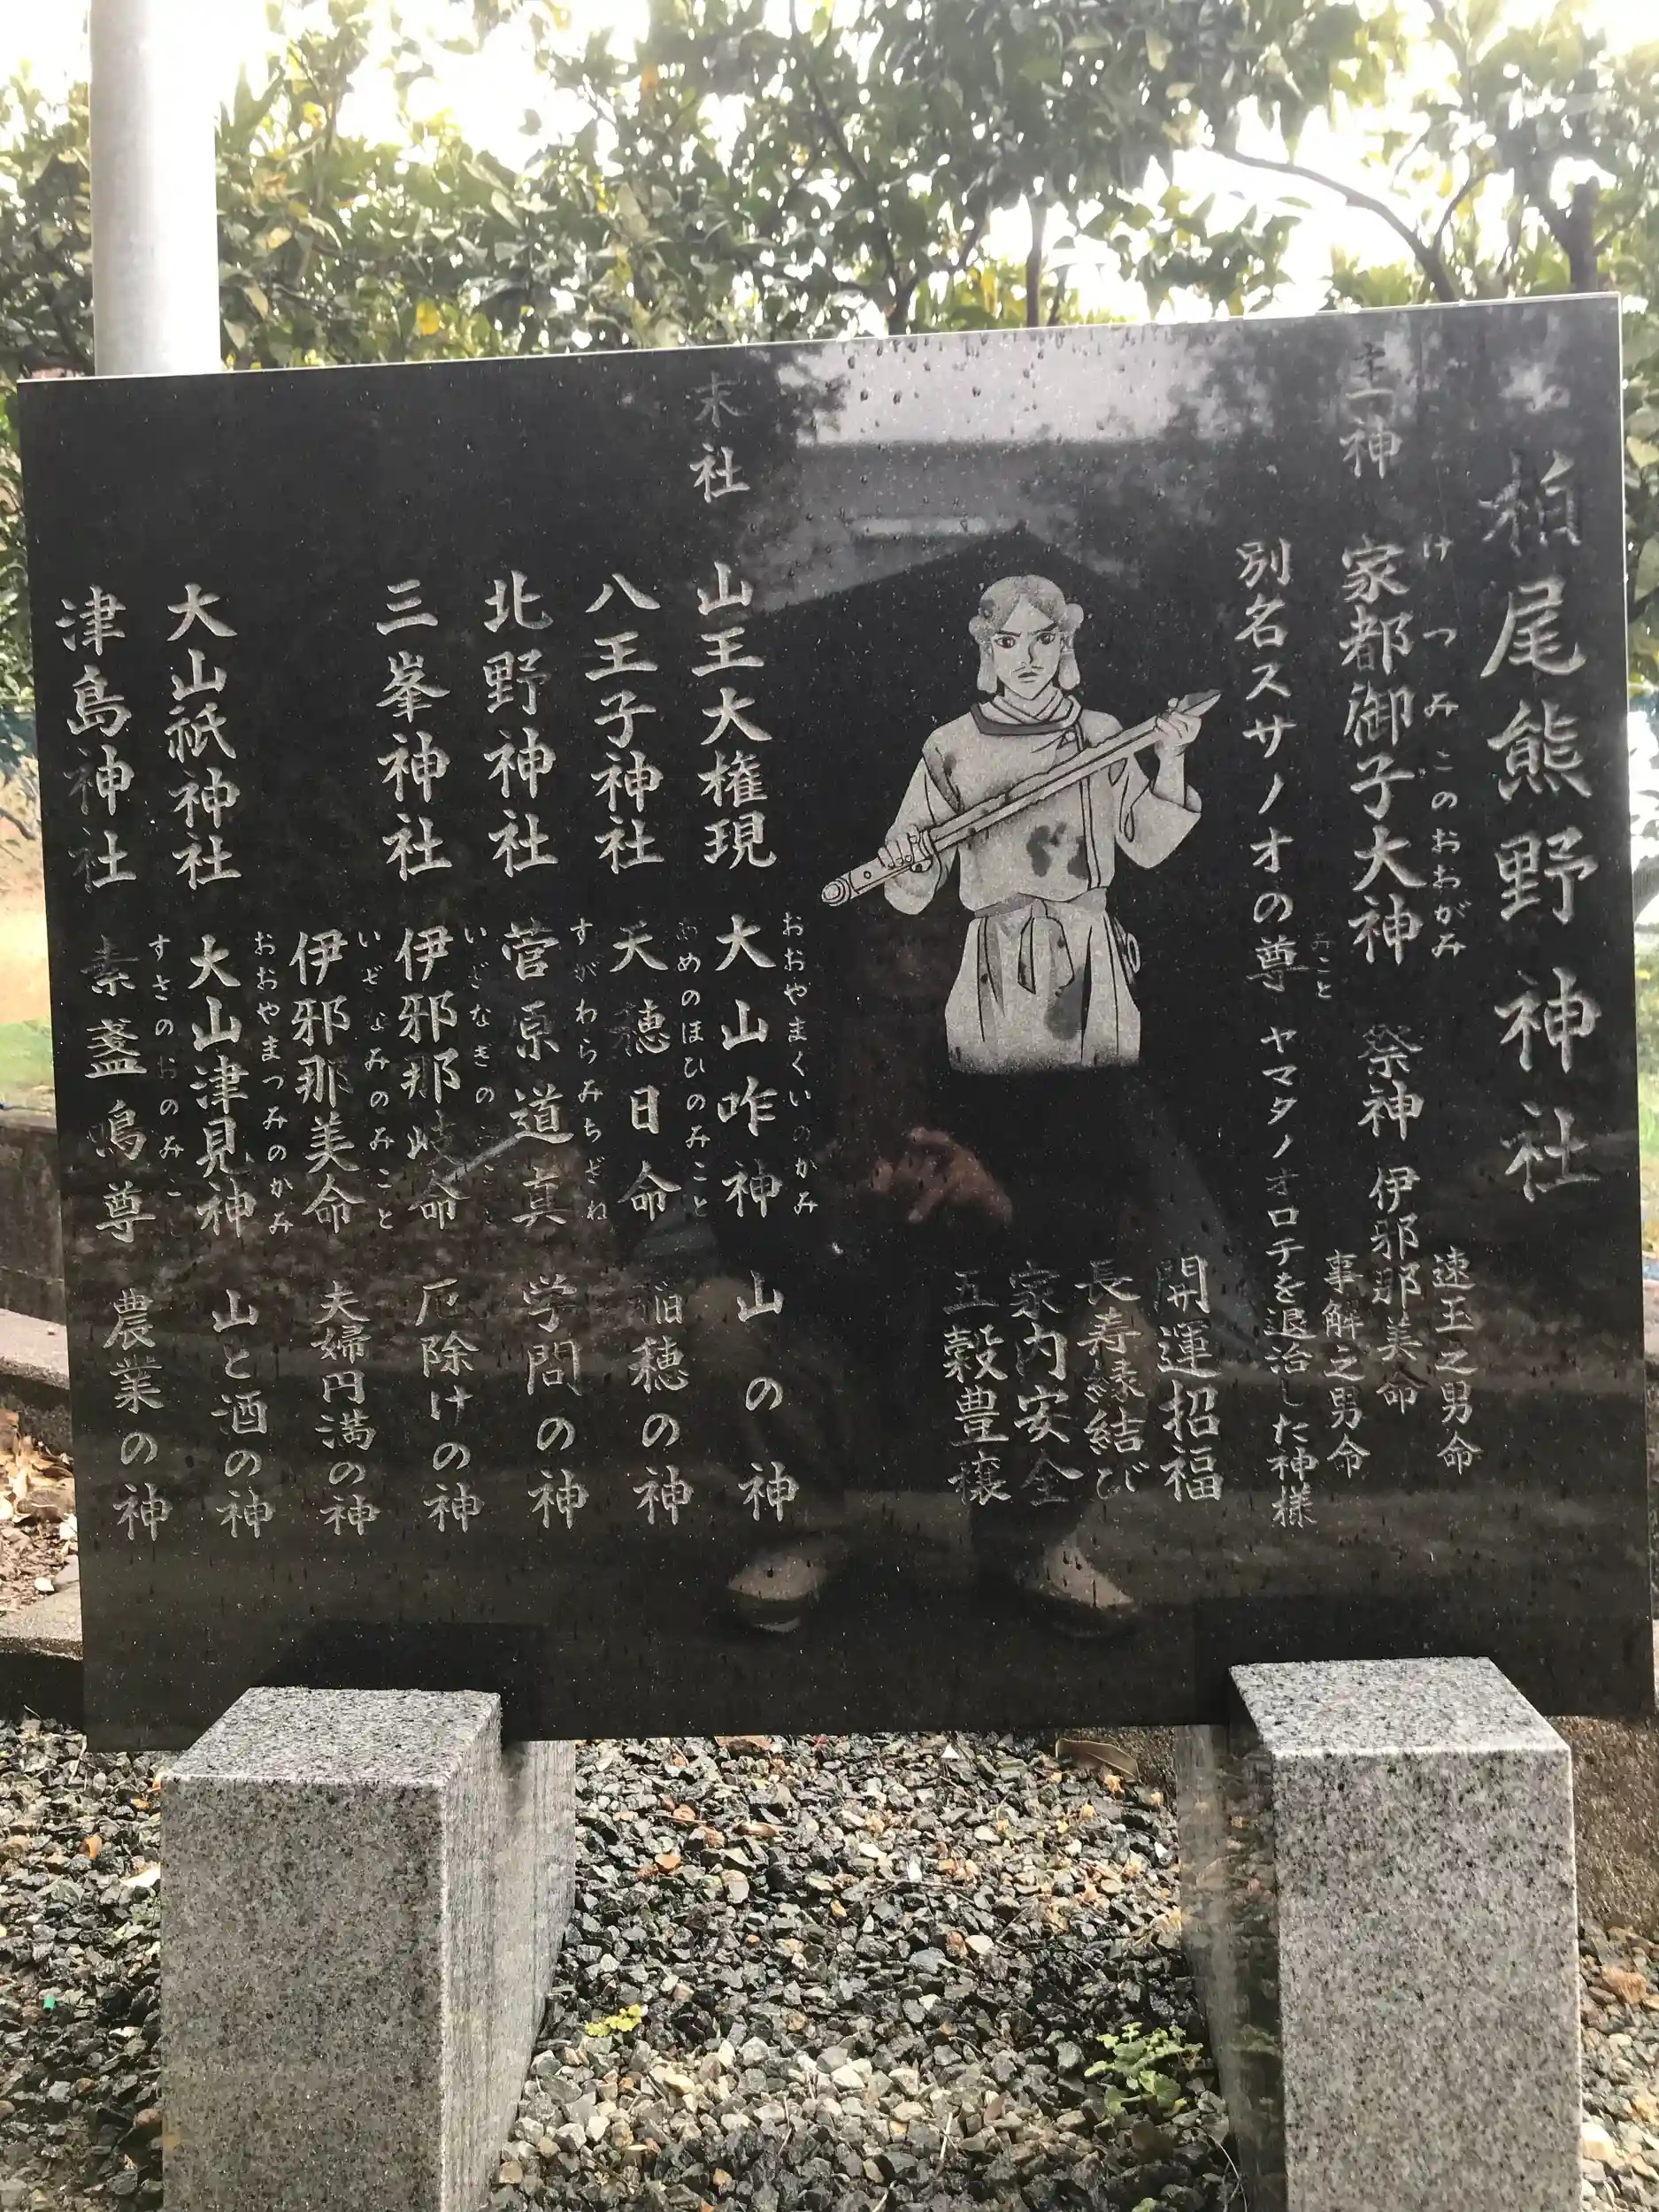 柏尾熊野神社
主神 家都御子大神 祭神 伊邪那美命
けつみこのおおがみ
速玉之男命
事解之男命
別名スサノオの尊 ヤマタノオロチを退治した神様
みこと
開運招福
長寿縁結び
家内安全
五穀豊穣
末社 山王大権現 大山咋神 山の神
おおやまくいのかみ
八王子神社 天穂日命 稲穂の神
あめのほひのみこと
北野神社 菅原道真 学問の神
すがわらみちざね
三峯神社 伊邪那岐命 厄除けの神
いざなぎの
伊邪那美命 夫婦円満の神
いざなみのみこと
大山祇神社 大山津見神 山と酒の神
おおやまつみのかみ
津島神社 素盞鳴尊 農業の神
すさのおのみこと